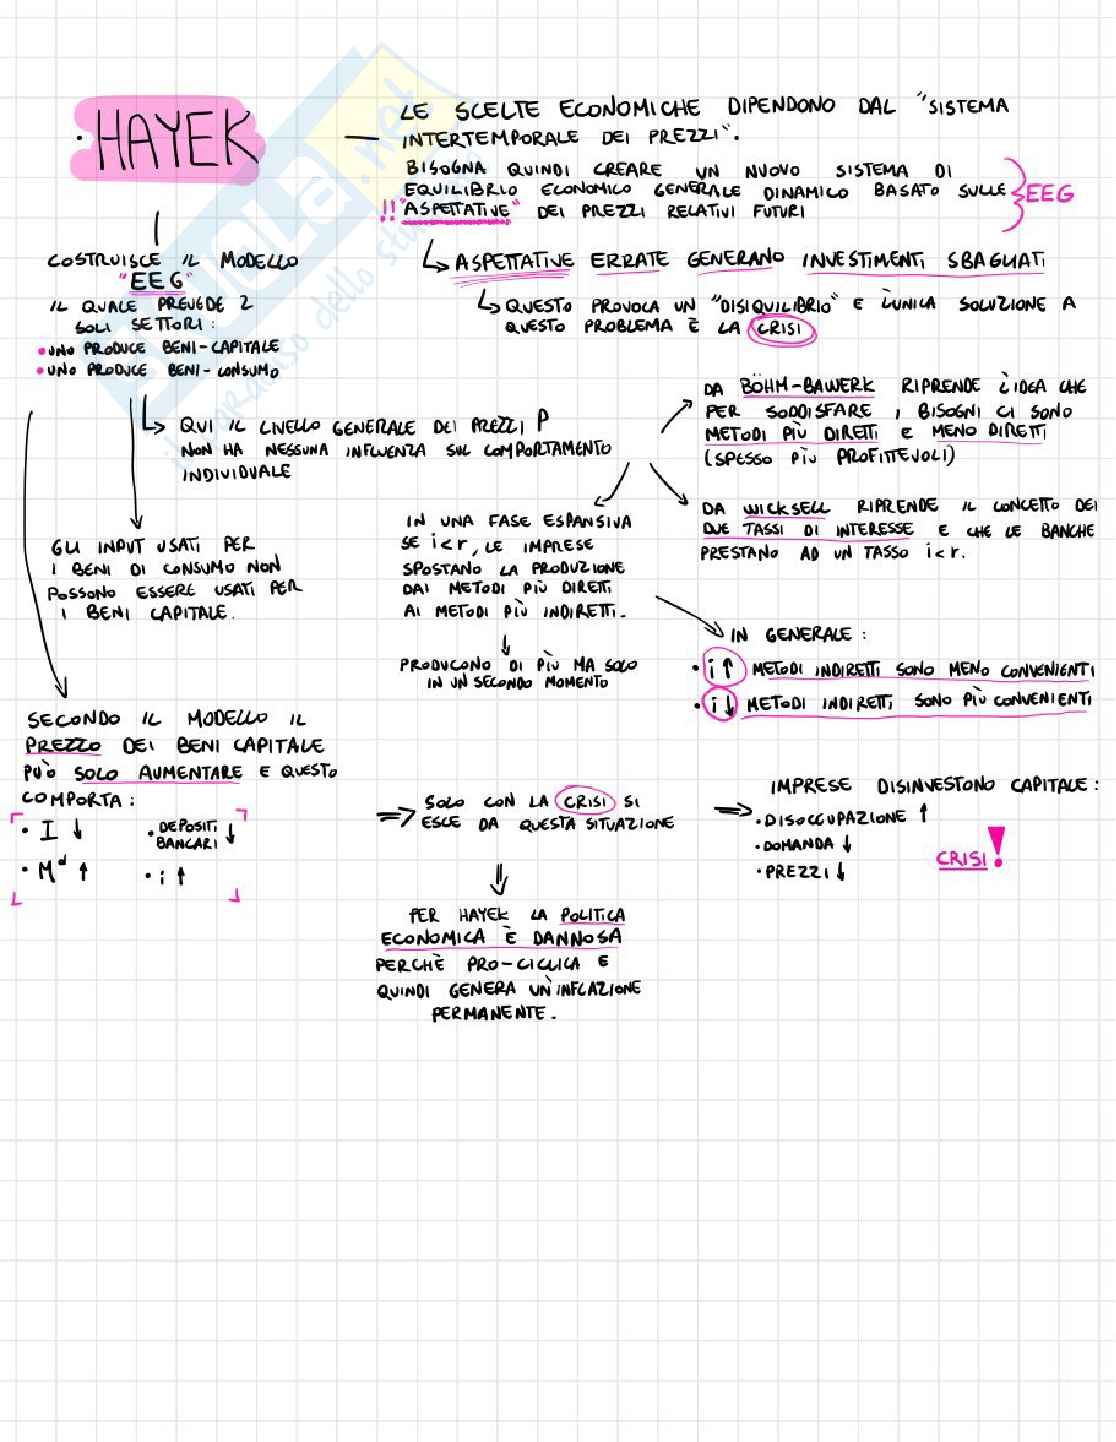 · HAYEK
— LE SCELTE ECONOMICHE DIPENDONO DAL "SISTEMA
INTERTEMPORALE DEI PREZZI".
BISOGNA QUINDI CREARE UN NUOVO SISTEMA DI
EQUILIBRIO ECONOMICO GENERALE DINAMICO BASATO SULLE
!! "ASPETTATIVE" DEI PREZZI RELATIVI FUTURI
EEG
↳ ASPETTATIVE ERRATE GENERANO INVESTIMENTI SBAGLIATI
↳ QUESTO PROVOCA UN "DISIQUILIBRIO" E L'UNICA SOLUZIONE A
QUESTO PROBLEMA È LA CRISI
COSTRUISCE IL MODELLO
"EEG"
IL QUALE PREVEDE 2
SOLI SETTORI:
• UNO PRODUCE BENI-CAPITALE
• UNO PRODUCE BENI-CONSUMO
↳ QUI IL LIVELLO GENERALE DEI PREZZI P
NON HA NESSUNA INFLUENZA SUL COMPORTAMENTO
INDIVIDUALE
GLI INPUT USATI PER
I BENI DI CONSUMO NON
POSSONO ESSERE USATI PER
I BENI CAPITALE.
DA BÖHM-BAWERK RIPRENDE L'IDEA CHE
PER SODDISFARE I BISOGNI CI SONO
METODI PIÙ DIRETTI E MENO DIRETTI
(SPESSO PIÙ PROFITTEVOLI)
DA WICKSELL RIPRENDE IL CONCETTO DEI
DUE TASSI DI INTERESSE E CHE LE BANCHE
PRESTANO AD UN TASSO i<r.
IN UNA FASE ESPANSIVA
SE i<r, LE IMPRESE
SPOSTANO LA PRODUZIONE
DAI METODI PIÙ DIRETTI
AI METODI PIÙ INDIRETTI.
↓
PRODUCONO DI PIÙ MA SOLO
IN UN SECONDO MOMENTO
IN GENERALE:
• i ↑ METODI INDIRETTI SONO MENO CONVENIENTI
• i ↓ METODI INDIRETTI SONO PIÙ CONVENIENTI
SECONDO IL MODELLO IL
PREZZO DEI BENI CAPITALE
PUÒ SOLO AUMENTARE E QUESTO
COMPORTA:
• I ↓
• DEPOSITI
BANCARI ↓
• Mᵈ ↑
• i ↑
⇒ SOLO CON LA CRISI SI
ESCE DA QUESTA SITUAZIONE
⇓
PER HAYEK LA POLITICA
ECONOMICA È DANNOSA
PERCHÈ PRO-CICLICA E
QUINDI GENERA UN'INFLAZIONE
PERMANENTE.
⇒ IMPRESE DISINVESTONO CAPITALE:
• DISOCCUPAZIONE ↑
• DOMANDA ↓
• PREZZI ↓
CRISI!